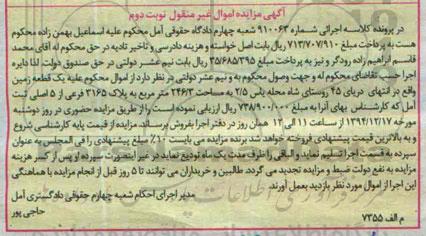 آگهی مزایده اموال غیر منقول نوبت دوم
در پرونده کلاسه اجرائی شماره ۹۱۰۰۶۳ شعبه چهارم دادگاه حقوقی آمل محکوم علیه اسماعیل بهمن زاده محکوم
هست به پرداخت مبلغ ۷۱۳/۷۰۷/۹۱۰ ریال بابت اصل خواسته و هزینه دادرسی و تاخیر تادیه در حق محکوم له آقای محمد
قاسم ابراهیم زاده رودگر و نیز به پرداخت مبلغ ۳۵/۶۸۵/۳۹۵ ریال بابت نیم عشر دولتی در حق صندوق دولت لذا دایره
اجرا حسب تقاضای محکوم له و جهت وصول محکوم به و نیم عشر دولتی در نظر دارد از اموال محکوم علیه یک قطعه زمین
واقع در انتهای دریای ۴۵ روستای شاه محله یاس ۲/۵ به مساحت ۲۴۶/۳ متر مربع به پلاک ۳۱۶۵ فرعی از ۵ اصلی ثبت
آمل که کارشناس بهای آنرا به مبلغ ۷۳۸/۹۰۰/۰۰۰ ریال ارزیابی نموده است را از طریق مزایده حضوری در روز دوشنبه
مورخه ۱۳۹۴/۱۲/۱۷ از ساعت ۱۱ الی ۱۲ همان روز در دفتر اجرا بفروش برساند. مزایده از قیمت پایه کارشناسی شروع
و به بالاترین قیمت پیشنهادی فروخته خواهد شد. برنده مزایده می بایست ۱۰٪ مبلغ پیشنهادی را فی المجلس به عنوان
سپرده به قسمت اجرا تسلیم نماید و الباقی را ظرف مدت یک ماه تودیع نماید در غیر اینصورت سپرده او پس از کسر هزینه
مزایده به نفع دولت ضبط و مزایده تجدید می گردد. طالبین و خریداران می توانند تا ۵ روز قبل از انجام مزایده با هماهنگی
این اجرا از اموال مورد نظر بازدید بعمل آورند.
مدیر اجرای احکام شعبه چهارم حقوقی دادگستری آمل
حاجی پور
م الف ۷۳۵۵